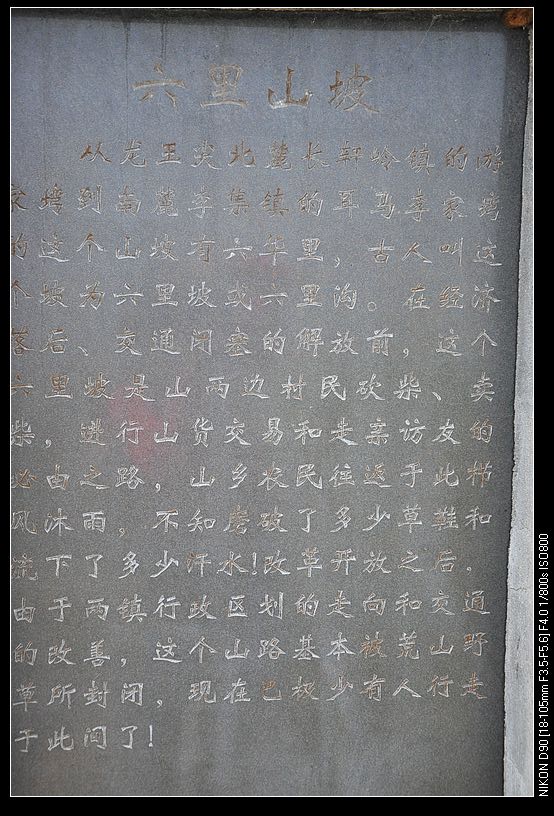 六里山坡
从龙王尖北麓长轩岭镇的游
家塆到南麓李集镇的耳马李家塆
的这个山坡有六华里，古人叫这
个坡为六里坡或六里沟。在经济
落后、交通闭塞的解放前，这个
六里坡是山两边村民砍柴、卖
柴，进行山货交易和走亲访友的
必由之路，山乡农民往返于此栉
风沐雨，不知磨破了多少草鞋和
流下了多少汗水!改革开放之后，
由于两镇行政区划的走向和交通
的改善，这个山路基本被荒山野
草所封闭，现在已极少有人行走
于此间了!
NIKON D90 [18-105mm F3.5-F5.6] F4.0 1/800s ISO800